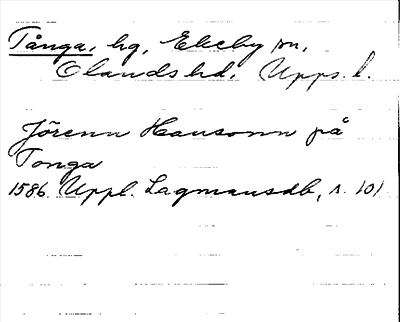 Tånga, hg, Ekeby sn,
Olands hd, Upps. l.
Jörenn Hansonn på
Tonga
1586. Uppl. Lagmansdb, s. 101